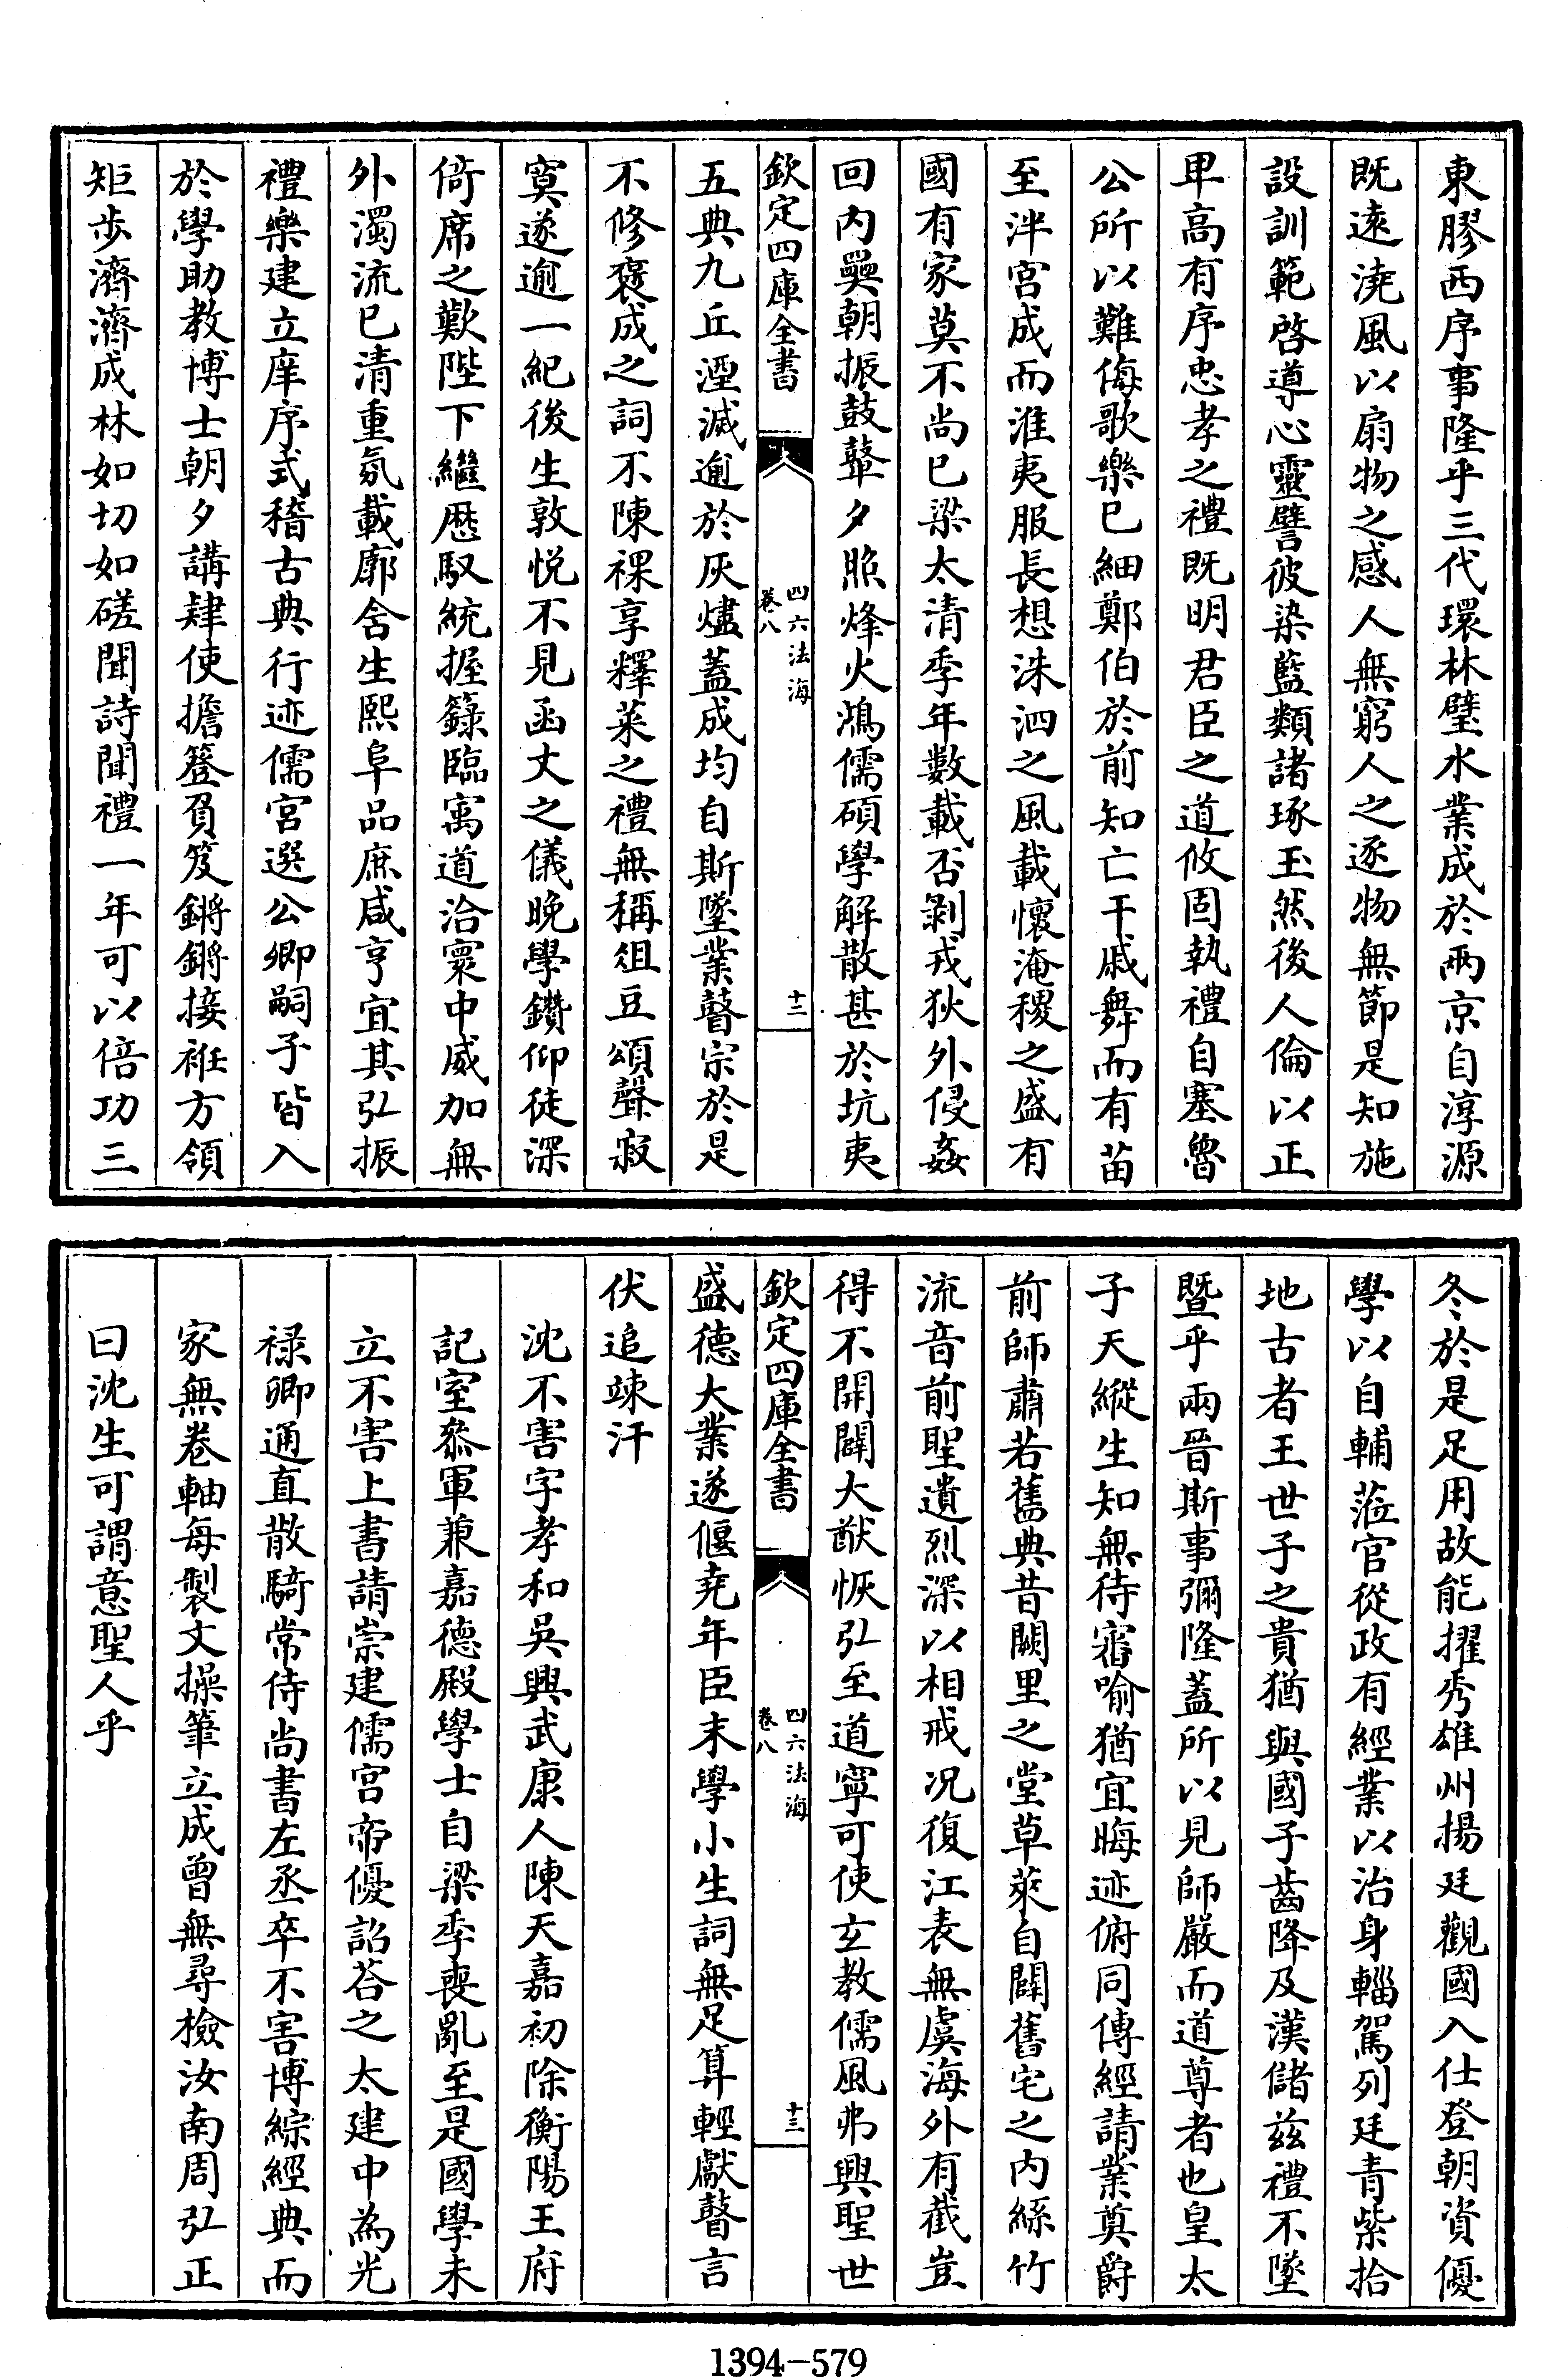 東膠西序事隆乎三代環林璧水業成於兩京自淳源
既逺澆風以扇物之感人無窮人之逐物無節是知施
設訓範啓導心靈譬彼染藍類諸琢玉然後人倫以正
卑高有序忠孝之禮既明君臣之道攸固執禮自塞魯
公所以難侮歌樂已細鄭伯於前知亡干戚舞而有苗
至泮宮成而淮夷服長想洙泗之風載懷淹稷之盛有
國有家莫不尚已梁太清季年數載否剝戎狄外侵姦
回内奰朝振鼓鼙夕照烽火鴻儒碩學解散甚於坑夷
欽定四庫全書
四六法海
卷八
十二
五典九丘湮滅逾於灰燼蓋成均自斯墜業瞽宗於是
不修褒成之詞不陳祼享釋菜之禮無稱俎豆頌聲寂
寞遂逾一紀後生敦悅不見函丈之儀晚學鑽仰徒深
倚席之歎陛下繼歴馭統握籙臨寓道洽寰中威加無
外濁流已清重氛載廓含生熙阜品庶咸亨宜其弘振
禮樂建立庠序式稽古典行迹儒宮選公卿嗣子皆入
於學助教博士朝夕講肄使擔簦負笈鏘鏘接袵方領
矩步濟濟成林如切如磋聞詩聞禮一年可以倍功三
冬於是足用故能擢秀雄州揚廷觀國入仕登朝資優
學以自輔蒞官從政有經業以治身輜駕列廷青紫拾
地古者王世子之貴猶與國子齒降及漢儲兹禮不墜
暨乎兩晉斯事彌隆蓋所以見師嚴而道尊者也皇太
子天縱生知無待審喻猶宜晦迹俯同傳經請業奠爵
前師肅若舊典昔闕里之堂草萊自闢舊宅之内絲竹
流音前聖遺烈深以相戒况復江表無虞海外有截豈
得不開闢大猷恢弘至道寧可使玄教儒風弗興聖世
欽定四庫全書
四六法海
卷八
十三
盛德大業遂偃尭年臣末學小生詞無足算輕獻瞽言
伏追竦汗
沈不害字孝和吳興武康人陳天嘉初除衡陽王府
記室叅軍兼嘉德殿學士自梁季喪亂至是國學未
立不害上書請崇建儒宮帝優詔荅之太建中為光
禄卿通直散騎常侍尚書左丞卒不害博綜經典而
家無卷軸每製文操筆立成曾無尋檢汝南周弘正
曰沈生可謂意聖人乎
1394-579